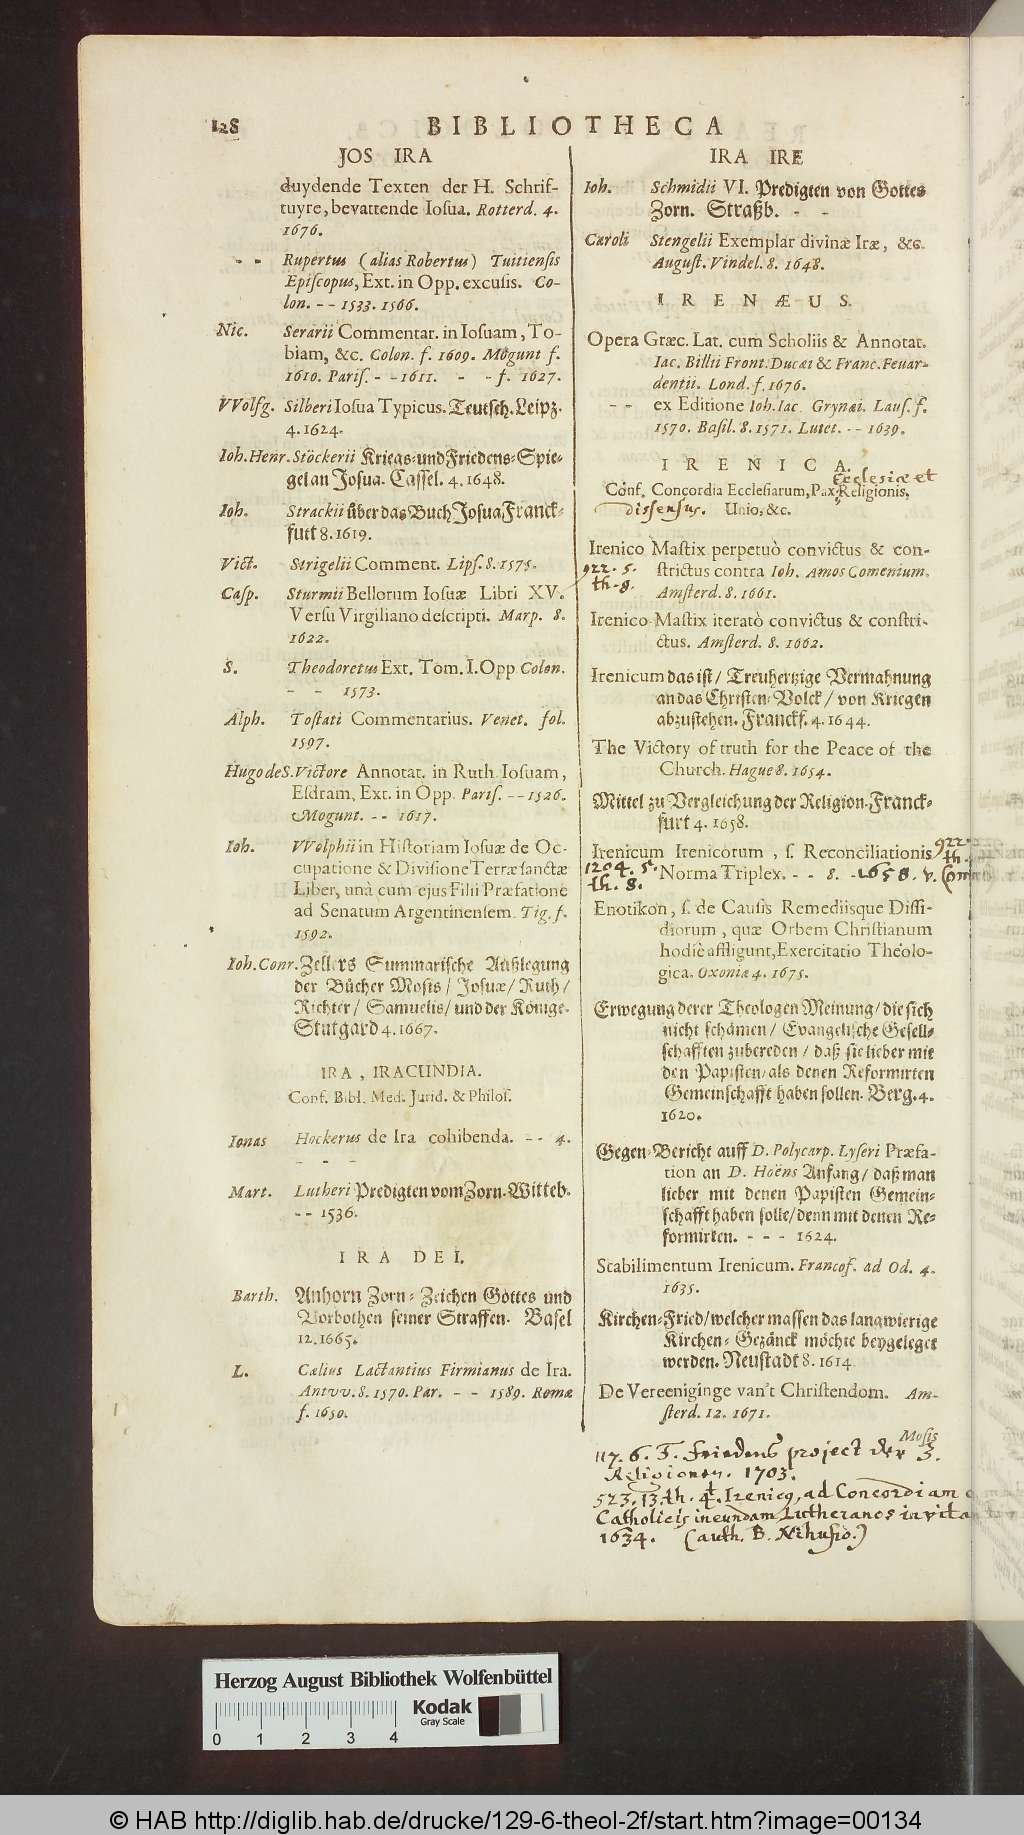 128
BIBLIOTHECA
JOS IRA
duydende Texten der H. Schrif-
tuyre, bevattende Iosua. Rotterd. 4.
1676.
- - Rupertus (alias Robertus) Tuitiensis
Episcopus, Ext. in Opp. excusis. Co-
lon. - - 1533. 1566.
Nic. Serarii Commentar. in Iosuam, To-
biam, &c. Colon. f. 1609. Mogunt f.
1610. Paris. - - 1611. - - f. 1627.
VVolfg. Silberi Iosua Typicus. Teutsch. Leipz.
4. 1624.
Ioh. Henr. Stöckerii Kriegs- und Friedens-Spie-
gel an Josua. Cassel. 4. 1648.
Ioh. Strackii über das Buch Josua Franck-
furt 8. 1619.
Vict. Strigelii Comment. Lips. 8. 1575.
Casp. Sturmii Bellorum Iosuæ Libri XV.
Versu Virgiliano descripti. Marp. 8.
1622.
S. Theodoretus Ext. Tom. I. Opp Colon.
- - 1573.
Alph. Tostati Commentarius. Venet. fol.
1597.
Hugo de S. Victore Annotat. in Ruth Iosuam,
Esdram, Ext. in Opp. Paris. - - 1526.
Mogunt. - - 1617.
Ioh. VVolphii in Historiam Iosuæ de Oc-
cupatione & Divisione Terræ sanctæ
Liber, unà cum ejus Filii Præfatione
ad Senatum Argentinensem. Tig. f.
1592.
Ioh. Conr. Zellers Summarische Außlegung
der Bücher Mosis / Josuæ / Ruth /
Richter / Samuelis / und der Könige.
Stutgard 4. 1667.
IRA, IRACUNDIA.
Conf. Bibl. Med. Jurid. & Philos.
Ionas Hockerus de Ira cohibenda. - - 4.
- - -
Mart. Lutheri Predigten vom Zorn. Witteb.
- - 1536.
IRA DEI.
Barth. Anhorn Zorn-Zeichen Gottes und
Vorbothen seiner Straffen. Basel
12. 1665.
L. Cælius Lactantius Firmianus de Ira.
Antvv. 8. 1570. Par. - - 1589. Romæ
f. 1650.
IRA IRE
Ioh. Schmidii VI. Predigten von Gottes
Zorn. Straßb. - -
Caroli Stengelii Exemplar divinæ Iræ, &c.
August. Vindel. 8. 1648.
IRENÆUS.
Opera Græc. Lat. cum Scholiis & Annotat.
Iac. Billii Front. Ducæi & Franc. Feuar-
dentii. Lond. f. 1676.
- - ex Editione Ioh. Iac. Grynæi. Laus. f.
1570. Basil. 8. 1571. Lutet. - - 1639.
IRENICA.
Ecclesiæ et
Conf. Concordia Ecclesiarum, Pax Religionis,
Dissensus. Unio, &c.
Irenico Mastix perpetuò convictus & con-
922. 5. strictus contra Ioh. Amos Comenium.
th. 8. Amsterd. 8. 1661.
Irenico Mastix iteratò convictus & constri-
ctus. Amsterd. 8. 1662.
Irenicum das ist / Treuhertzige Vermahnung
an das Christen-Volck / von Kriegen
abzustehen. Franckf. 4. 1644.
The Victory of truth for the Peace of the
Church. Hague 8. 1654.
Mittel zu Vergleichung der Religion. Franck-
furt 4. 1658.
Irenicum Irenicorum, s. Reconciliationis 922.
1204. 5. Norma Triplex. - - 8. - 1658. v.
th. 8.
Enotikon, s. de Causis Remediisque Dissi-
diorum, quæ Orbem Christianum
hodiè affligunt, Exercitatio Theolo-
gica. Oxoniæ 4. 1675.
Erwegung derer Theologen Meinung / die sich
nicht schämen / Evangelische Gesell-
schafften zubereden / daß sie lieber mit
den Papisten / als denen Reformirten
Gemeinschafft haben sollen. Berg. 4.
1620.
Gegen-Bericht auff D. Polycarp. Lyseri Præfa-
tion an D. Hoëns Anfang / daß man
lieber mit denen Papisten Gemein-
schafft haben solle / denn mit denen Re-
formirten. - - - 1624.
Stabilimentum Irenicum. Francof. ad Od. 4.
1635.
Kirchen-Fried / welcher massen das langwierige
Kirchen-Gezänck möchte beygeleget
werden. Neustadt 8. 1614
De Vereeniginge van't Christendom. Am-
sterd. 12. 1671.
Mosis
117. 6. T. Friedens project der 3.
Religionen. 1703.
523. 13. th. 4t. Irenicq, ad Concordiam
Catholicis ineundam Lutheranos
1634. (auth. B. Nihusio.)
Herzog August Bibliothek Wolfenbüttel
Kodak
Gray Scale
0 1 2 3 4
© HAB http://diglib.hab.de/drucke/129-6-theol-2f/start.htm?image=00134